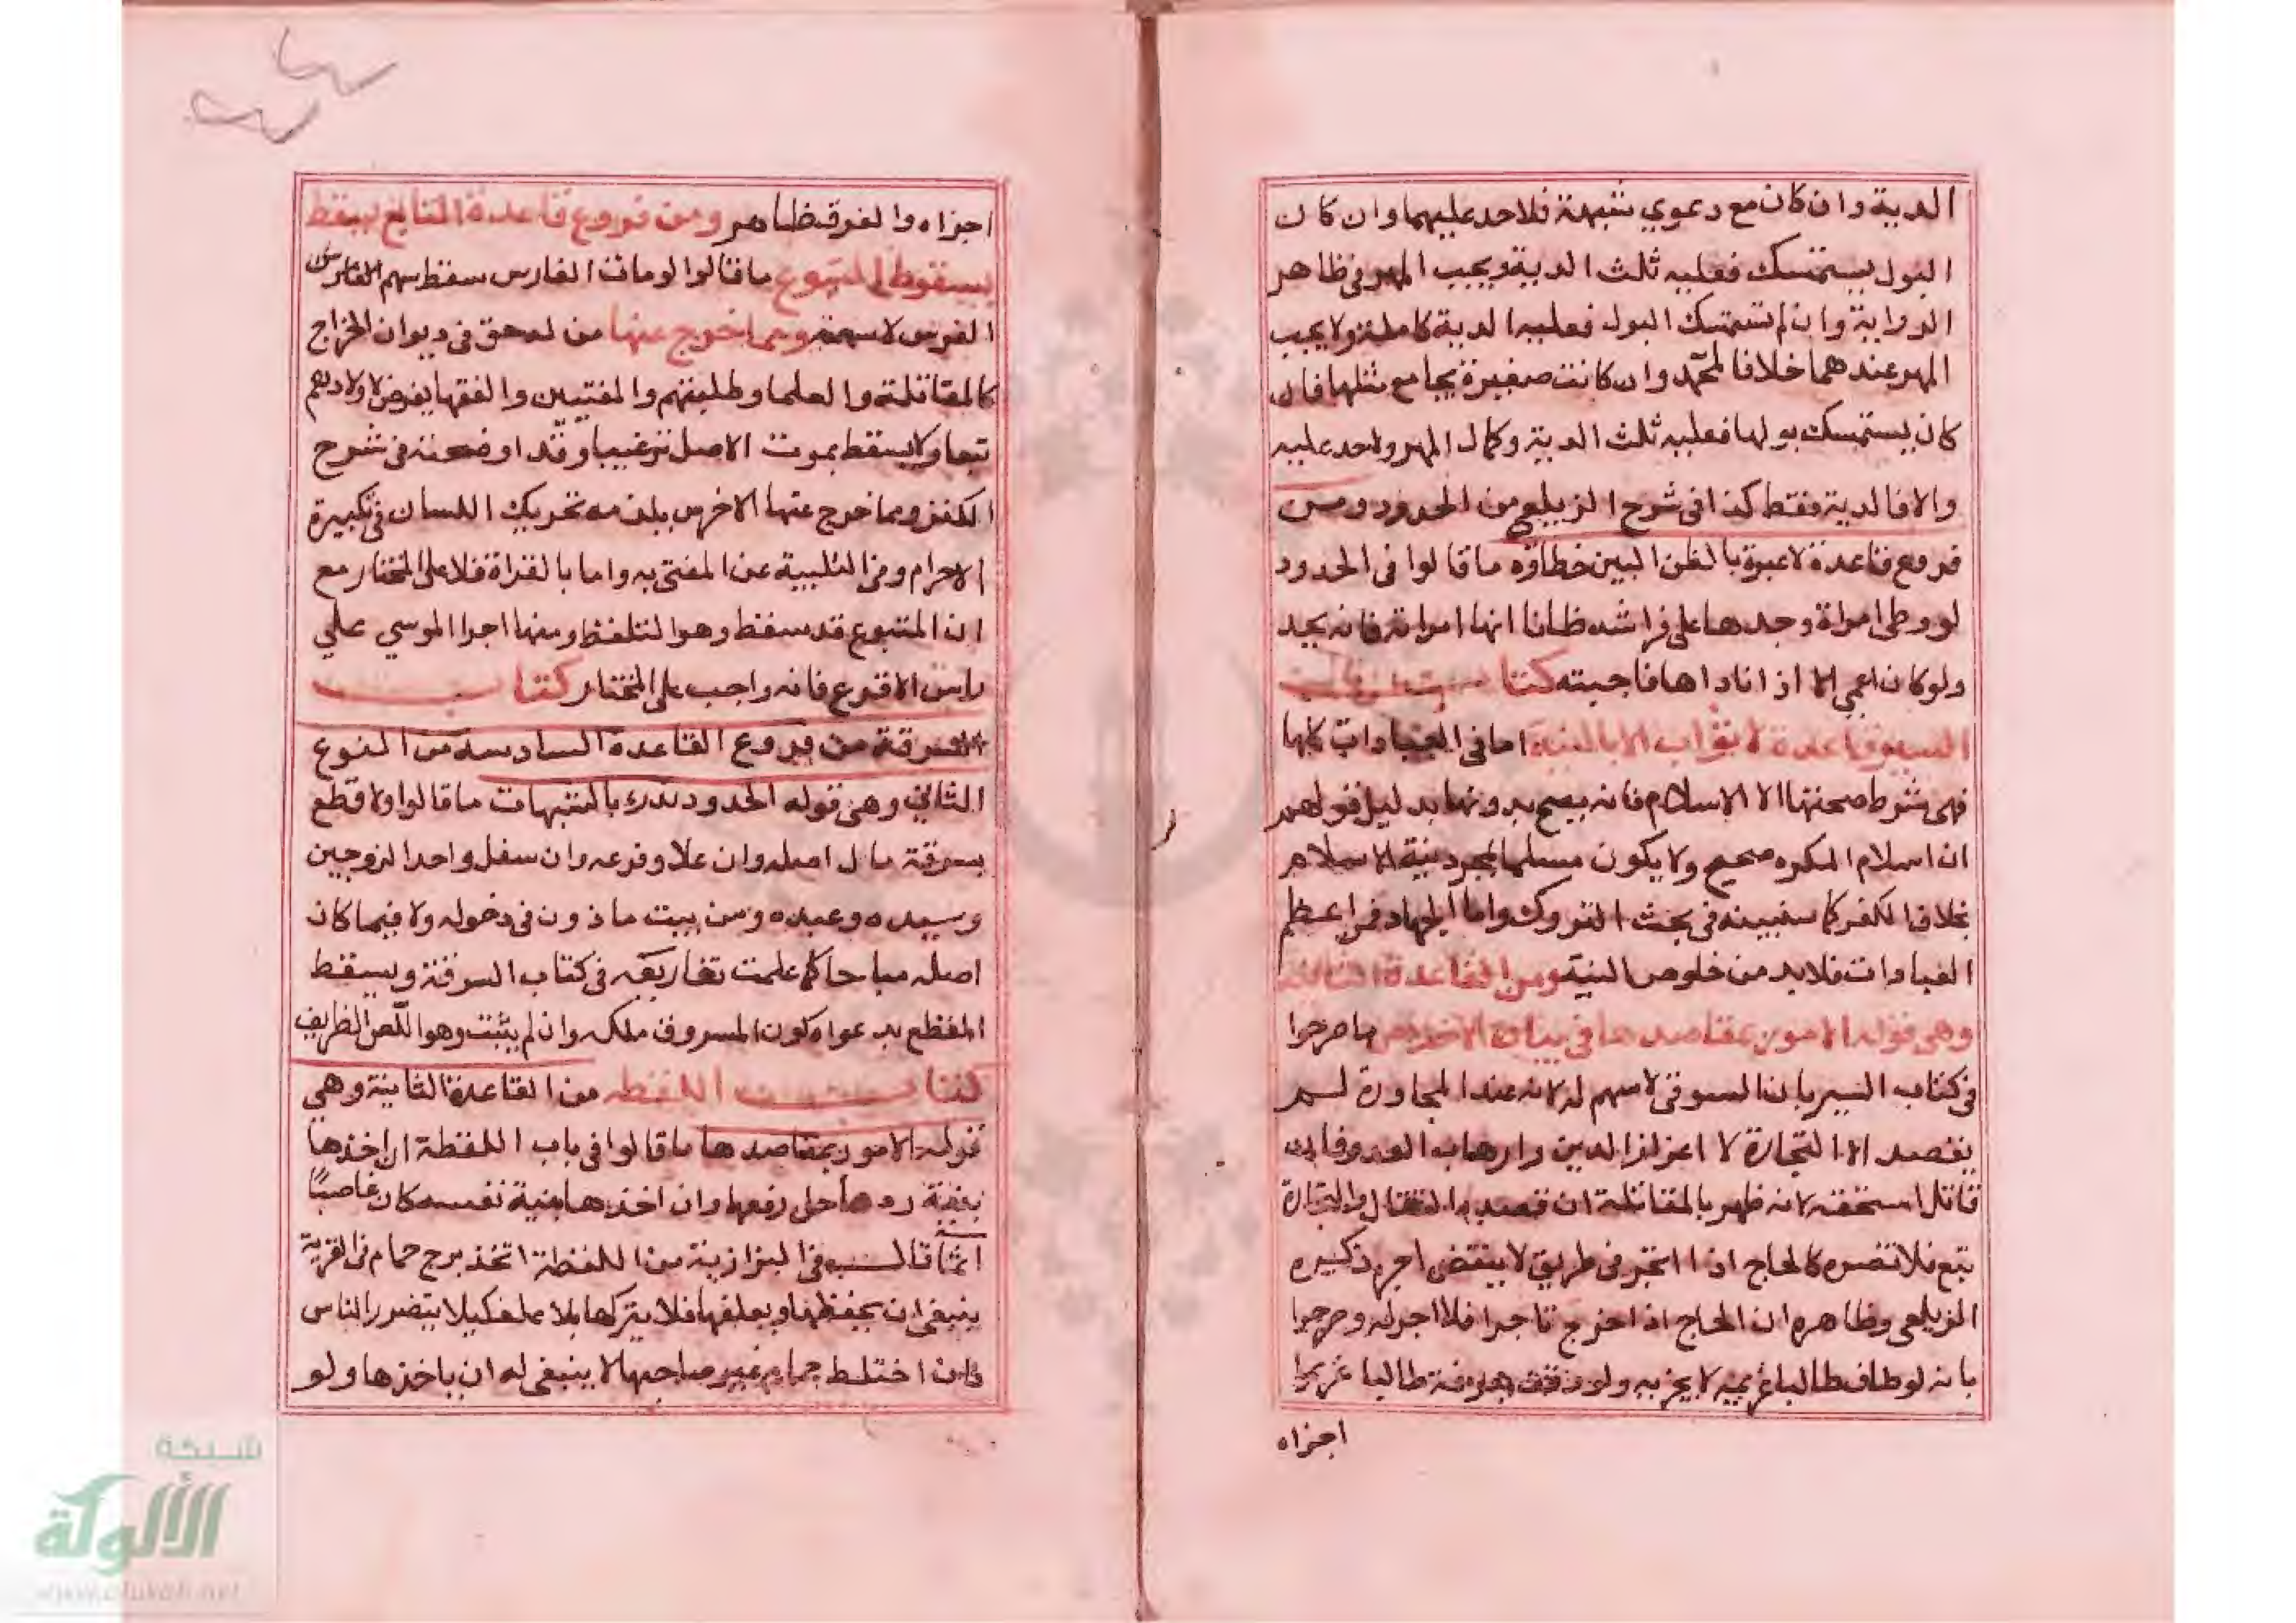 الدية وان كان مع دعوي شبهة فلا حد عليهما وان كان
البول يستمسك فعليه ثلث الدية ويجب المهر في ظاهر
الرواية وان لم يستمسك البول فعليه الدية كاملة ولا يجب
المهر عندهما خلافا لمحمد وان كانت صغيرة يجامع مثلها فان
كان يستمسك بولها فعليه ثلث الدية وكمال المهر ولا حد عليه
والا فالدية فقط كذا في شرح الزيلعي من الحدود ومن
فروع قاعدة لا عبرة بالظن البين خطاؤه ما قالوا في الحدود
لو وطي امراة وجدها على فراشه ظانا انها امراته فانه يحد
ولو كان اعمي الا اذا ناداها فاجبته كتاب
السير قاعدة لا ثواب الا بالنية اما في العبادات كلها
فهي شرط صحتها الا الاسلام فانه يصح بدونها بدليل قولهم
ان اسلام المكره صحيح ولا يكون مسلما بمجرد نية الاسلام
بخلاف الكفر كما سنبينه في بحث التروك واما الجهاد فمن اعظم
العبادات فلا بد من خلوص النية ومن القاعدة الثانية
وهي قوله الامور بمقاصدها في بيان الاخلاص ما صرحوا
في كتاب السير بان السوقي لا سهم له لانه عند المجاورة لم
يقصد الا التجارة لا اعزاز الدين وارهاب العدو فان
قاتل استحقه لانه ظهر بالمقاتلة ان قصده القتال والتجارة
تبع فلا تضره كالحاج اذا اتجر في طريق لا ينقص اجره ذكره
الزيلعي وظاهره ان الحاج اذا خرج تاجرا فلا اجر له وصرحوا
بانه لو طاف طالبا غريمه لا يجزيه ولو وقف بعرفة طالبا غريما
اجزاه
اجزاه والفرق ظاهر ومن فروع قاعدة التابع يسقط
بسقوط المتبوع ما قالوا لو مات الفارس سقط سهم الفرس
الفرس لا سهمه ومما خرج عنها من له حق في ديوان الخراج
كالمقاتلة والعلما وطلبتهم والمفتيين والفقها يفرض لاولادهم
تبعا ولا يسقط بموت الاصل ترغيبا وقد اوضحته في شرح
الكنز ومما خرج عنها الاخرس يلزمه تحريك اللسان في تكبيرة
الاحرام وفي التلبية عن المفتي به واما بالقراة فلا على المختار مع
ان المتبوع قد سقط وهو التلفظ ومنها اجرا الموسي علي
راس الاقرع فانه واجب على المختار كتاب
السرقة من فروع القاعدة السادسة من النوع
الثاني وهي قوله الحدود تدرك بالشبهات ما قالوا ولا قطع
بسرقة مال اصله وان علا وفرعه وان سفل واحد الزوجين
وسيده وعبده ومن بيت ماذون في دخوله ولا فيما كان
اصله مباحا كما علمت تفاريعه في كتاب السرقة ويسقط
القطع بدعواه كون المسروق ملكه وان لم يثبت وهو اللص الظريف
كتاب اللقطه من القاعدة الثانية وهي
قوله الامور بمقاصدها ما قالوا في باب اللقطة ان اخذها
بنية ردها حل رفعها وان اخذها بنية نفسه كان غاصبا
اثما قال في البزازية من اللقطة اتخذ برج حمام في القرية
ينبغي ان يحفظها ويعلفها فلا يتركها بلا علف كيلا يتضرر الناس
فان اختلط حمام غير صاحبها لا ينبغي له ان ياخذها ولو
شبكة
الألوكة
www.alukah.net